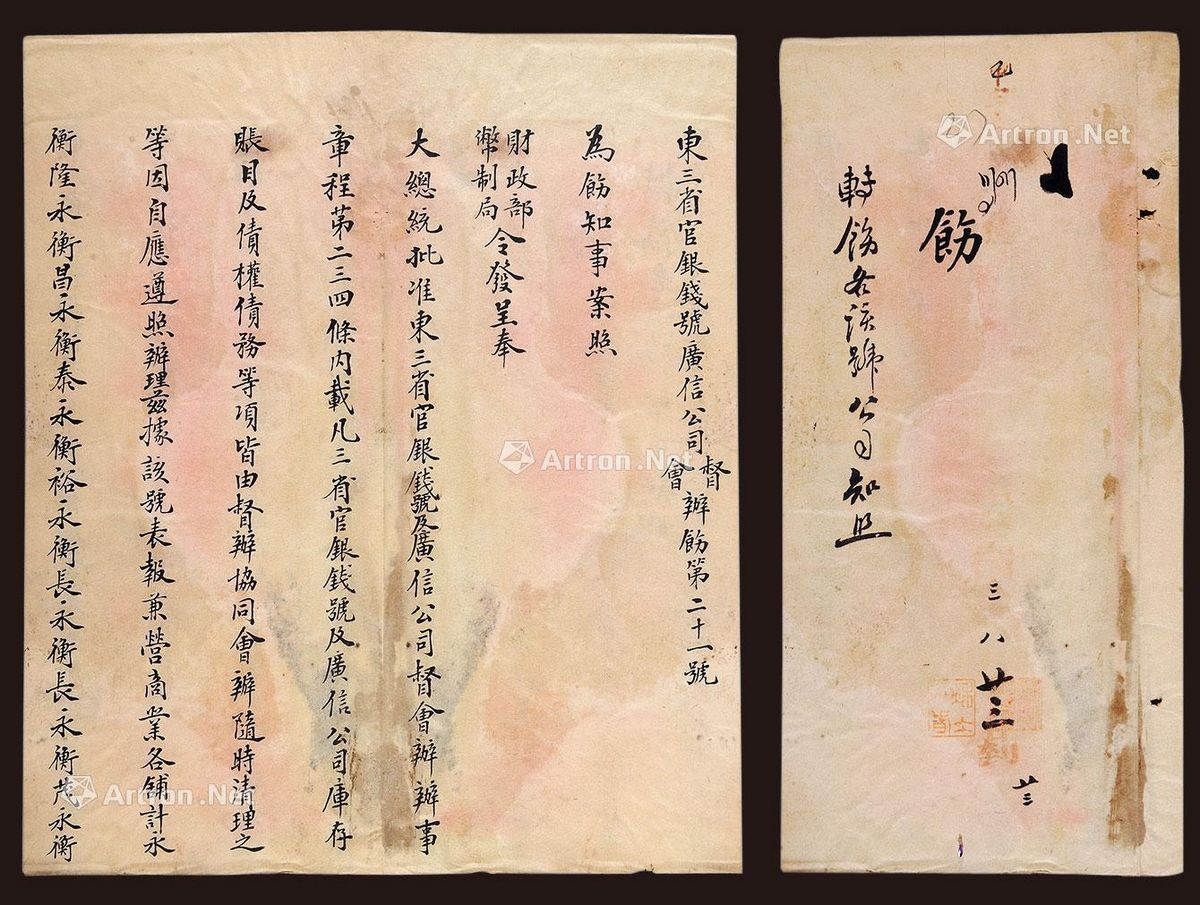 東三省官銀錢號廣信公司督會辦飭第二十一號
為飭知事案照
財政部幣制局令發呈奉
大總統批准東三省官銀錢號及廣信公司督會辦辦事
章程第二三四條內載凡三省官銀錢號及廣信公司庫存
賬目及債權債務等項皆由督辦協同會辦隨時清理之
等因自應遵照辦理茲據該號表報兼營商業各鋪計永
衡隆永衡昌永衡泰永衡裕永衡長永衡長永衡茂永衡
飭
轉飭各該號公司知照
三 八 廿三
廿三
到
Artron.Net
Artron.Net
Artron.Net